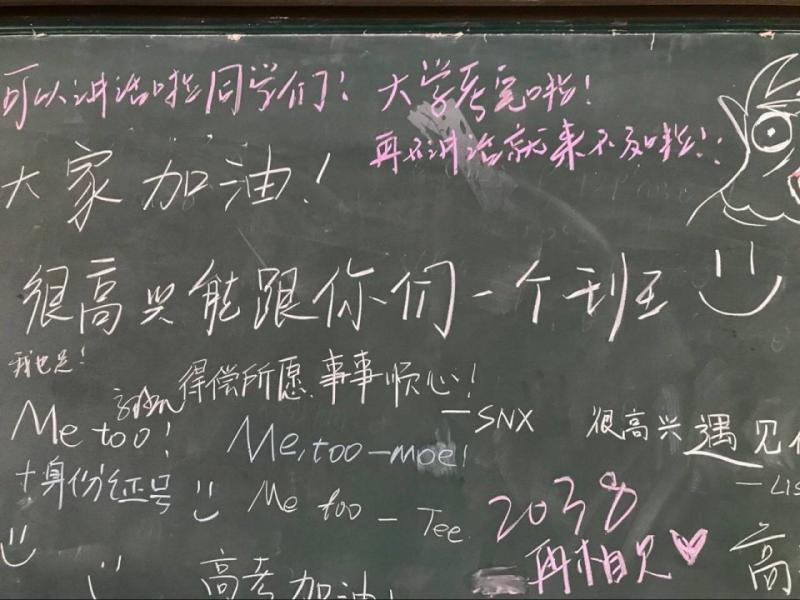 可以讲话啦同学们！
大学考完啦！
再不讲话就来不及啦！！
大家加油！
很高兴能跟你们一个班
我也是！
得偿所愿，事事顺心！
—SNX
Me too！
Me, too—moe！
很高兴遇见
—LIS
+身份证号
Me too — Tee
2038
再相见
高考加油！
高